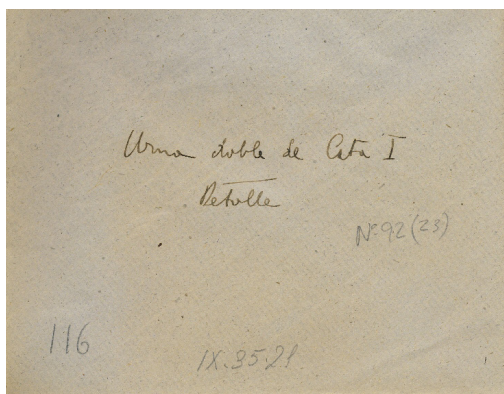 Urna doble de Cata I
Detalle
Nº 92 (23)
116
IX.35.21